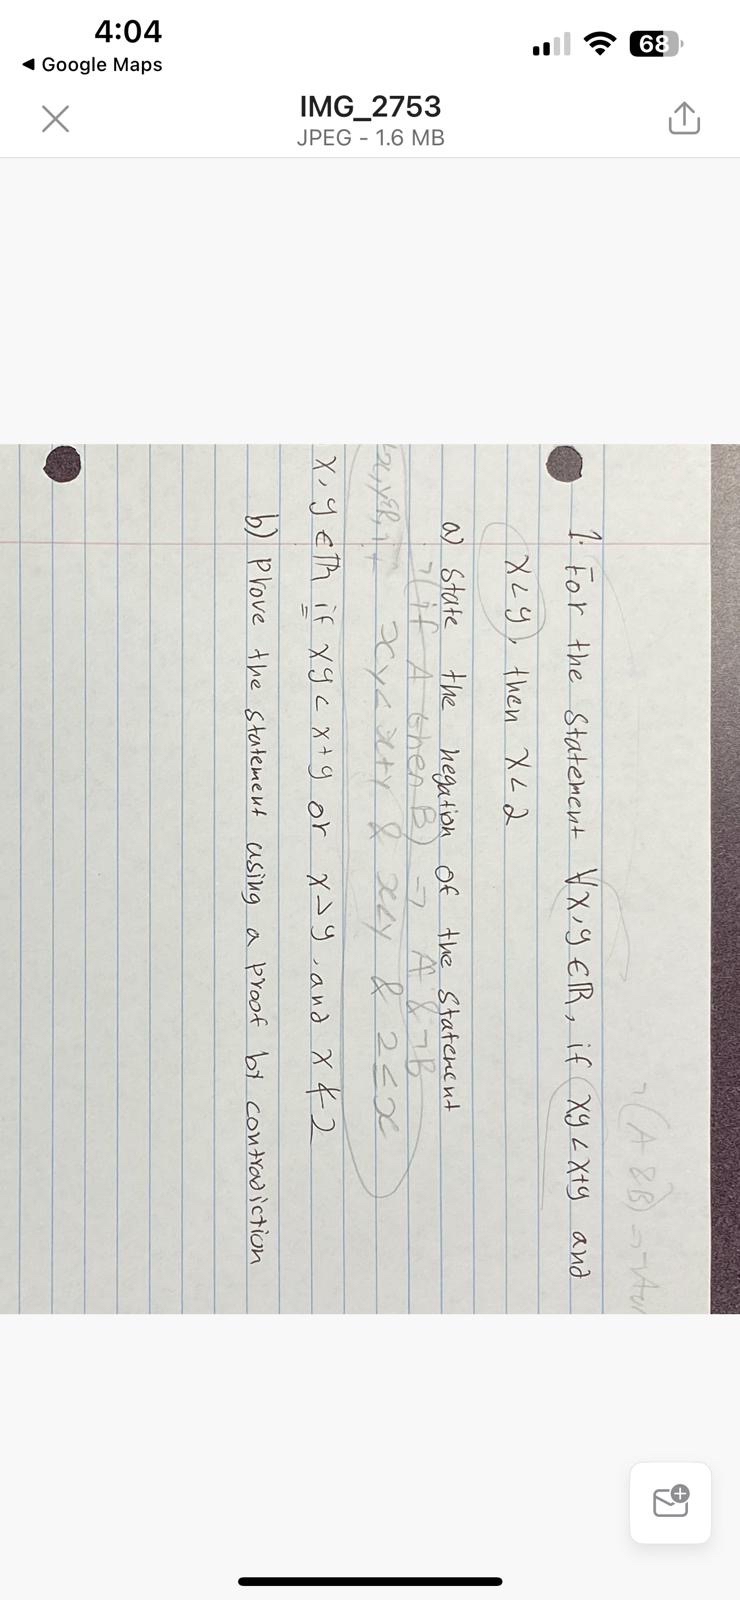 4:04
68
Google Maps
IMG_2753
JPEG - 1.6 MB
¬(A & B) =
1. For the Statement ∀x,y ∈ ℝ, if xy < x+y and
x < y, then x < 2
a) State the negation of the Statement
¬(if A then B) = A & ¬B
xy < x+y & x < y & 2 ≤ x
x, y ∈ if xy < x+y or x > y, and x ≮ 2
b) Prove the statement using a proof by contradiction